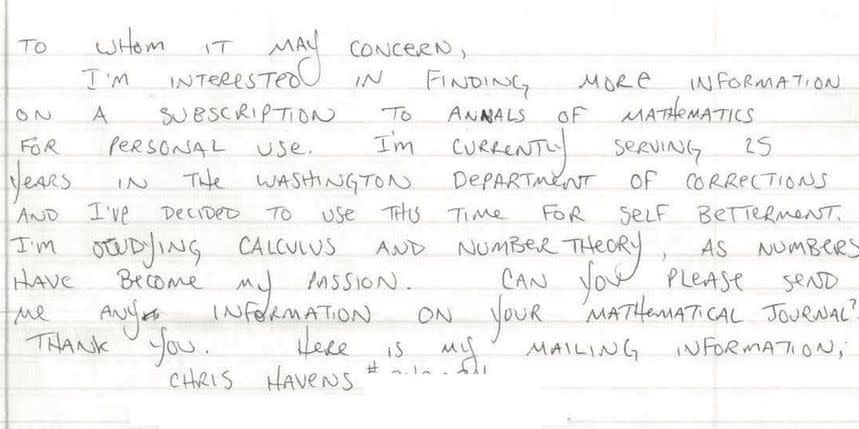 TO WHOM IT MAY CONCERN,
I'M INTERESTED IN FINDING MORE INFORMATION
ON A SUBSCRIPTION TO ANNALS OF MATHEMATICS
FOR PERSONAL USE. I'M CURRENTLY SERVING 25
YEARS IN THE WASHINGTON DEPARTMENT OF CORRECTIONS
AND I'VE DECIDED TO USE THIS TIME FOR SELF BETTERMENT.
I'M STUDYING CALCULUS AND NUMBER THEORY, AS NUMBERS
HAVE BECOME MY PASSION. CAN YOU PLEASE SEND
ME ANY INFORMATION ON YOUR MATHEMATICAL JOURNAL?
THANK YOU. HERE IS MY MAILING INFORMATION;
CHRIS HAVENS #